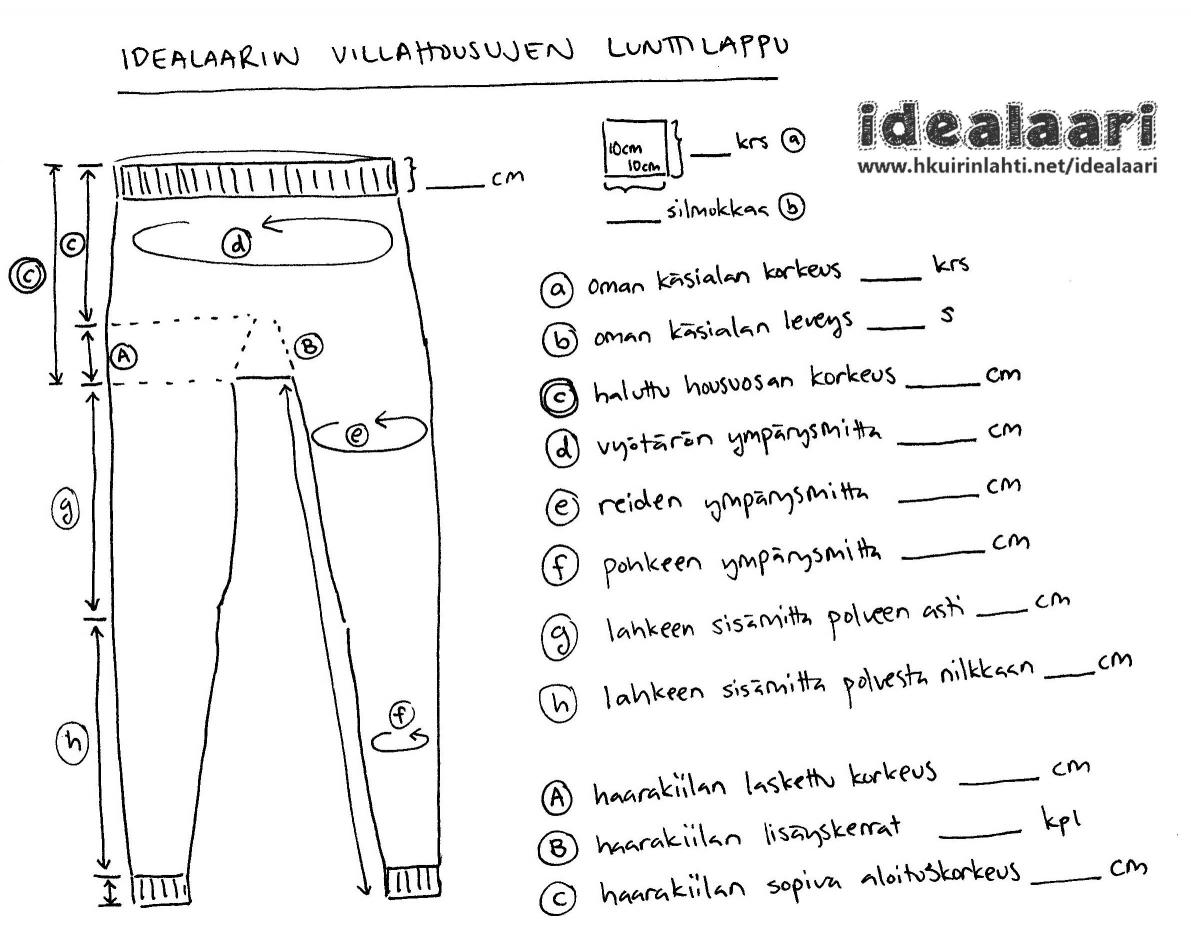 IDEALAARIN VILLAHOUSUJEN LUNTTILAPPU
idealaari
www.hkuirinlahti.net/idealaari
10cm
10cm
___ krs ⓐ
___ silmukkaa ⓑ
___ cm
c
c
d
A
B
e
g
h
f
ⓐ oman käsialan korkeus ___ krs
ⓑ oman käsialan leveys ___ s
ⓒ haluttu housuosan korkeus ___ cm
ⓓ vyötärön ympärysmitta ___ cm
ⓔ reiden ympärysmitta ___ cm
ⓕ pohkeen ympärysmitta ___ cm
ⓖ lahkeen sisämitta polveen asti ___ cm
ⓗ lahkeen sisämitta polvesta nilkkaan ___ cm
Ⓐ haarakiilan laskettu korkeus ___ cm
Ⓑ haarakiilan lisäyskerrat ___ kpl
Ⓒ haarakiilan sopiva aloituskorkeus ___ cm